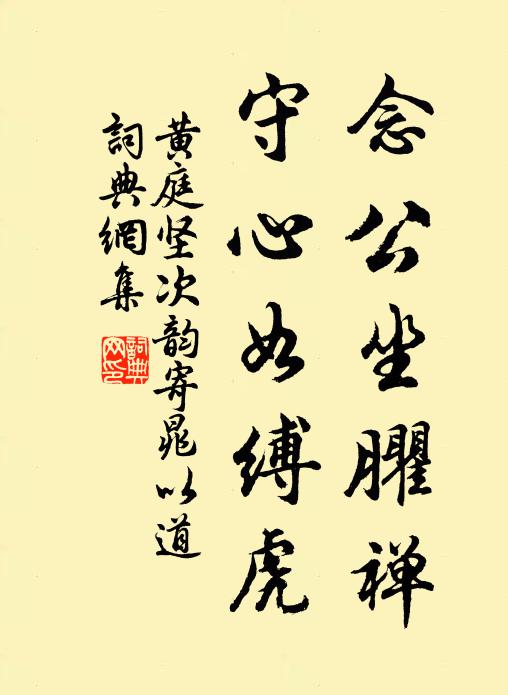 念公坐臞禅
守心如缚虎
黄庭坚次韵寄晁以道
詞典網集
詞典网印